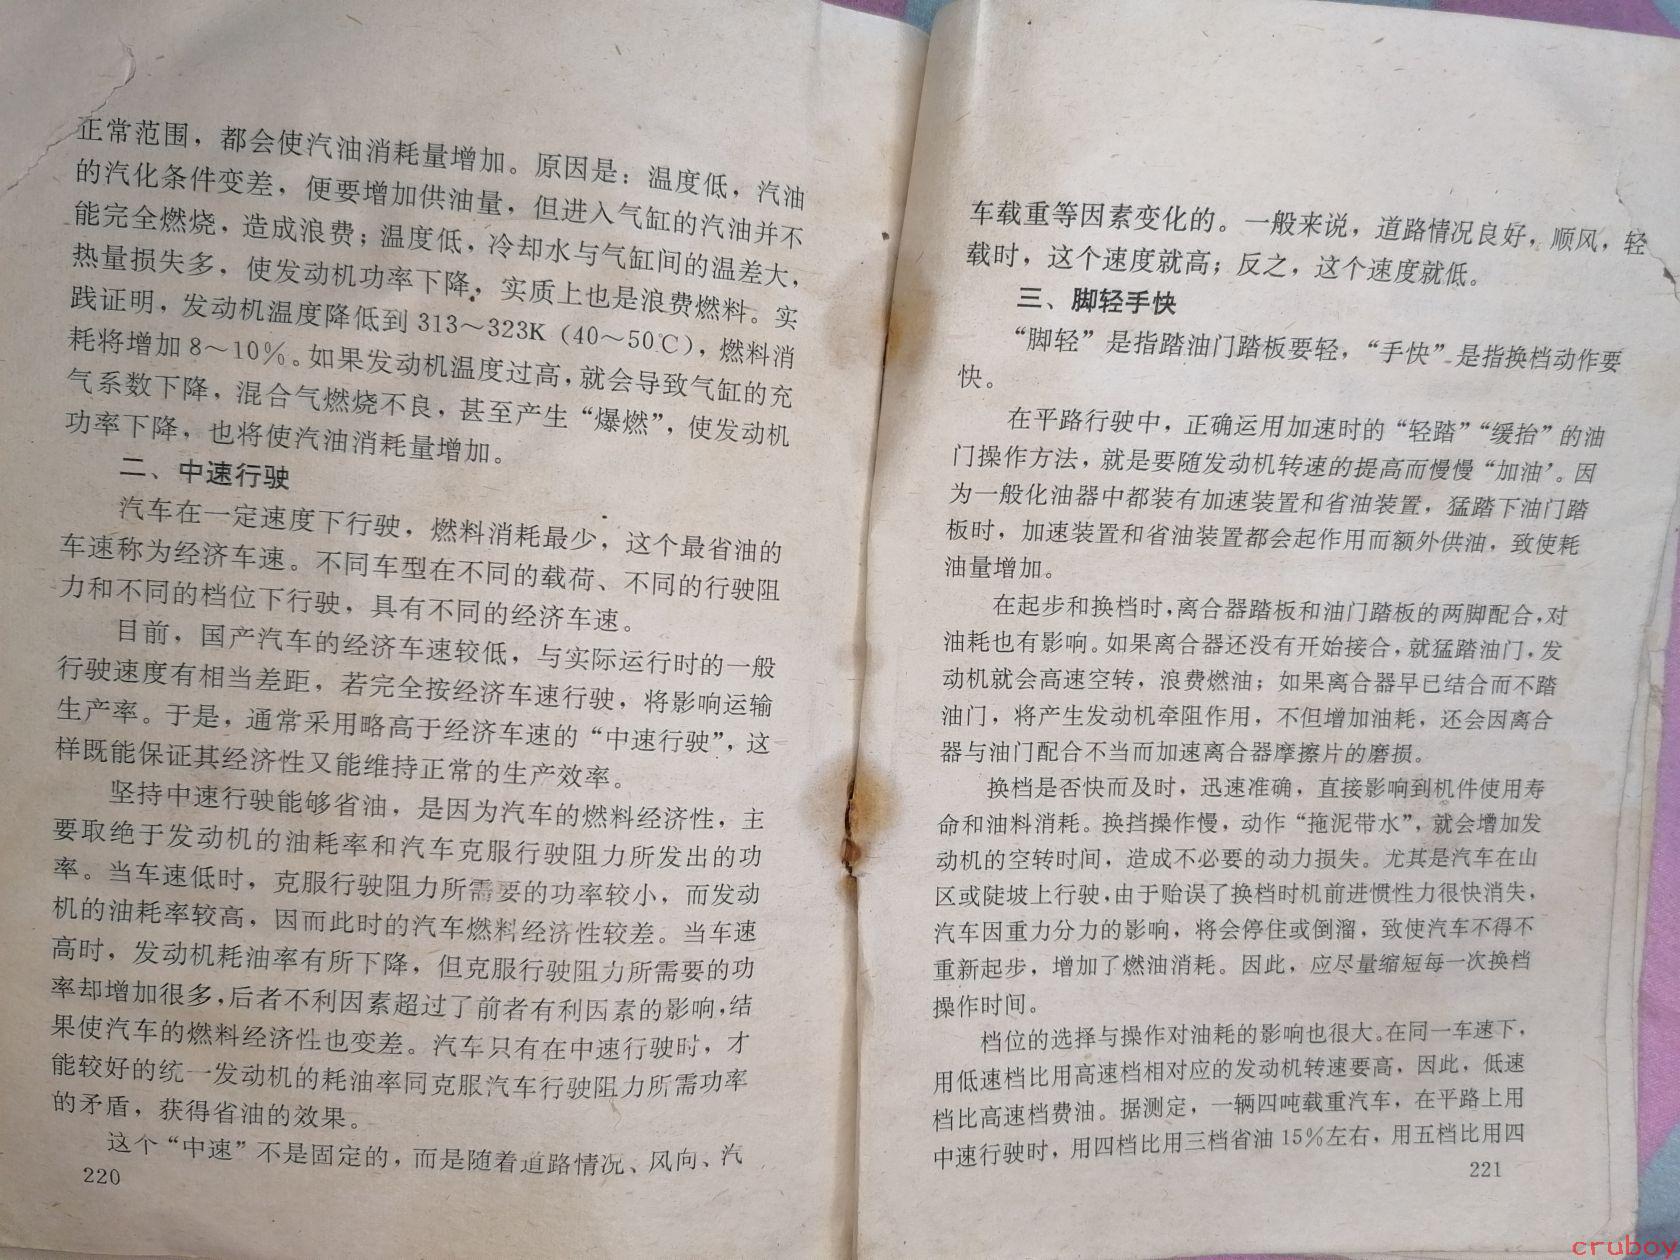 正常范围，都会使汽油消耗量增加。原因是：温度低，汽油
的汽化条件变差，便要增加供油量，但进入气缸的汽油并不
能完全燃烧，造成浪费；温度低，冷却水与气缸间的温差大，
热量损失多，使发动机功率下降，实质上也是浪费燃料。实
践证明，发动机温度降低到313～323K（40～50℃），燃料消
耗将增加8～10％。如果发动机温度过高，就会导致气缸的充
气系数下降，混合气燃烧不良，甚至产生“爆燃”，使发动机
功率下降，也将使汽油消耗量增加。
二、中速行驶
汽车在一定速度下行驶，燃料消耗最少，这个最省油的
车速称为经济车速。不同车型在不同的载荷、不同的行驶阻
力和不同的档位下行驶，具有不同的经济车速。
目前，国产汽车的经济车速较低，与实际运行时的一般
行驶速度有相当差距，若完全按经济车速行驶，将影响运输
生产率。于是，通常采用略高于经济车速的“中速行驶”，这
样既能保证其经济性又能维持正常的生产效率。
坚持中速行驶能够省油，是因为汽车的燃料经济性，主
要取绝于发动机的油耗率和汽车克服行驶阻力所发出的功
率。当车速低时，克服行驶阻力所需要的功率较小，而发动
机的油耗率较高，因而此时的汽车燃料经济性较差。当车速
高时，发动机耗油率有所下降，但克服行驶阻力所需要的功
率却增加很多，后者不利因素超过了前者有利因素的影响，结
果使汽车的燃料经济性也变差。汽车只有在中速行驶时，才
能较好的统一发动机的耗油率同克服汽车行驶阻力所需功率
的矛盾，获得省油的效果。
这个“中速”不是固定的，而是随着道路情况、风向、汽
220
车载重等因素变化的。一般来说，道路情况良好，顺风，轻
载时，这个速度就高；反之，这个速度就低。
三、脚轻手快
“脚轻”是指踏油门踏板要轻，“手快”是指换档动作要
快。
在平路行驶中，正确运用加速时的“轻踏”“缓抬”的油
门操作方法，就是要随发动机转速的提高而慢慢“加油’。因
为一般化油器中都装有加速装置和省油装置，猛踏下油门踏
板时，加速装置和省油装置都会起作用而额外供油，致使耗
油量增加。
在起步和换档时，离合器踏板和油门踏板的两脚配合，对
油耗也有影响。如果离合器还没有开始接合，就猛踏油门，发
动机就会高速空转，浪费燃油；如果离合器早已结合而不踏
油门，将产生发动机牵阻作用，不但增加油耗，还会因离合
器与油门配合不当而加速离合器摩擦片的磨损。
换档是否快而及时，迅速准确，直接影响到机件使用寿
命和油料消耗。换挡操作慢，动作“拖泥带水”，就会增加发
动机的空转时间，造成不必要的动力损失。尤其是汽车在山
区或陡坡上行驶，由于贻误了换档时机前进惯性力很快消失，
汽车因重力分力的影响，将会停住或倒溜，致使汽车不得不
重新起步，增加了燃油消耗。因此，应尽量缩短每一次换档
操作时间。
档位的选择与操作对油耗的影响也很大。在同一车速下，
用低速档比用高速档相对应的发动机转速要高，因此，低速
档比高速档费油。据测定，一辆四吨载重汽车，在平路上用
中速行驶时，用四档比用三档省油15％左右，用五档比用四
221
cruboy